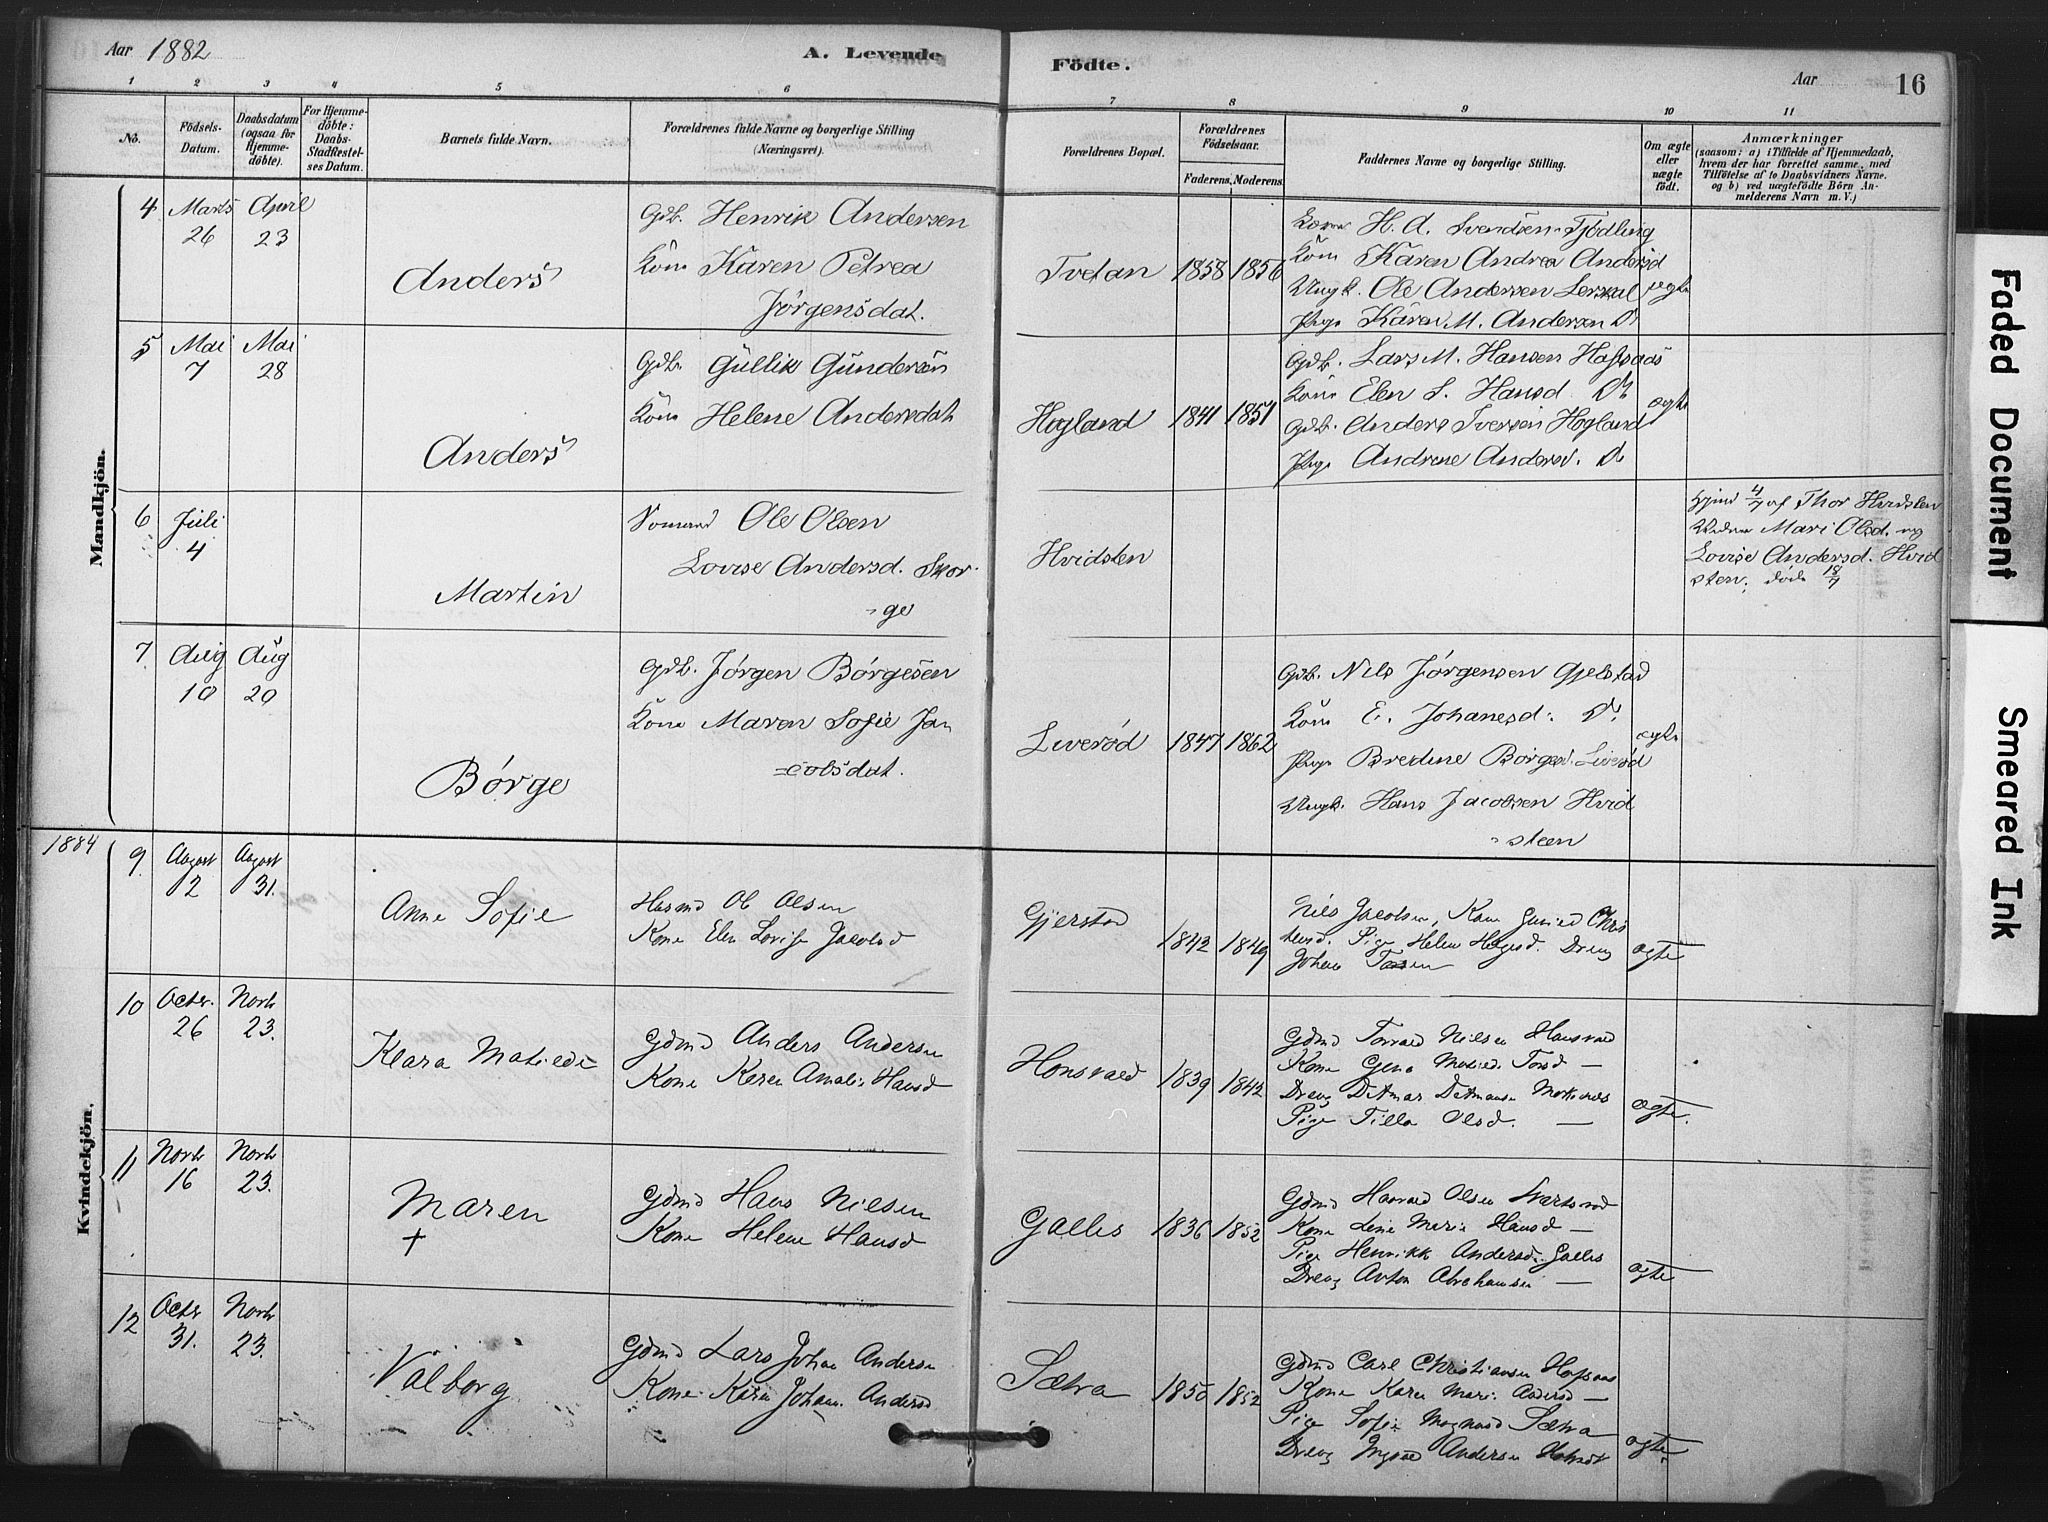 Aar 1882
A. Levende Födte.
Aar 16
1 2 3 4 5 6 7 8 9 10 11
No.
Födsels-Datum.
Daabsdatum (ogsaa for Hjemme-döbte).
For Hjemme-döbte: Daabs-Stadfæstel-ses Datum.
Barnets fulde Navn.
Forældrenes fulde Navne og borgerlige Stilling (Næringsvei).
Forældrenes Bopæl.
Forældrenes Födselsaar.
Faderens. Moderens.
Faddernes Navne og borgerlige Stilling.
Om ægte eller uægte födt.
Anmærkninger
(saasom: a) i Tilfælde af Hjemmedaab, hvem der har forrettet samme, med Tilföielse af to Daabsvidners Navne. og b) ved uægtefödte Börn An-melderens Navn m. V.)
Mandkjön.
4 Marts 26 April 23
Anders
Gdb. Henrik Andersen
Kone Karen Petrea
Jørgensdat.
Tvetan 1858 1856
H. A. Svendsen Fjødling
Kone Karen Andrea Andersd
Ungk. Ole Andersen
Pige Karen M. Andersen Do
ægte
5 Mai 7 Mai 28
Anders
Gdb. Gullik Gundersen
Kone Helene Andersdat
Hogland 1841 1851
Gdb. Lars M. Hansen Hafsaas
Kone Elen S. Hansd. Do
Gdb. Anders Iversen Hogland
Pige Andrene Andersd. Do
ægte
6 Juli 4
Martin
Sømand Ole Olsen
Lovise Andersd. Skor-
-ge
Hvidsten
4/7 af Thor Hvidsten
Mari Olsd. og
Lovise Andersd. Hvid
sten, død 18/7
7. Aug 10 Aug 20
Børge
Gdb. Jørgen Børgesen
Kone Maren Sofie Ja-
=cobsdat.
Liverød 1847 1862
Gdb. Nils Jørgensen Gjelstad
Kone E. Johanesd. Do
Pige Bredine Børgesd. Liverød
Ungk. Hans Jacobsen Hvid
-steen
ægte
1884
Kvindekjön.
9. August 2 August 31.
Anne Sofie
Ol Olsen
Kone Elen Lovise Jacobsd
Gjerstad 1842 1849
Nils Jacobsen, Kone
Pige Helene Dreng
Johan
ægte
10 Octbr. 26 Novbr 23.
Klara Matilde
Gdmd Anders Andersen
Kone Karen Amalie Hansd
Honsvald 1839 1842
Gdmd Torvald Nilsen Honsvald
Kone Gena Matilde Torsd —
Dreng Detmar Detmansen
Pige Tilla Olsd. —
ægte.
11 Novbr 16 Novbr 23.
Maren
+
Gdmd Hans Nielsen
Kone Helene Hansd
Galles 1836 1852
Gdmd Haavald Olsen
Kone Line Marie Hansd —
Pige Henrikke Andersd. Galles
Dreng Anton Abrahamsen —
ægte
12 Octbr 31. Novbr 23.
Valborg
Gdmd Lars Johan Andersen
Kone Karen Johane Andersd
Sætra 1850 1852
Gdmd Carl Christiansen Hafsaas
Kone Karen Marie Andersd —
Pige Sofie Magnusd Sætra
Dreng Ingvald Andersen
ægte.
Faded Document
Smeared Ink